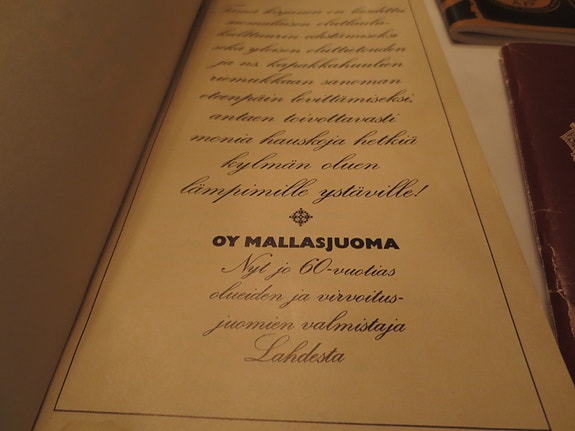 Tämä kirjanen on laadittu
suomalaisen olutlaulu-
kulttuurin edistämiseksi
sekä yleisen oluttietouden
ja ns. kapakkahuulien
riemukkaan sanoman
eteenpäin levittämiseksi,
antaen toivottavasti
monia hauskoja hetkiä
kylmän oluen
lämpimille ystäville!
OY MALLASJUOMA
Nyt jo 60-vuotias
olueiden ja virvoitus-
juomien valmistaja
Lahdesta